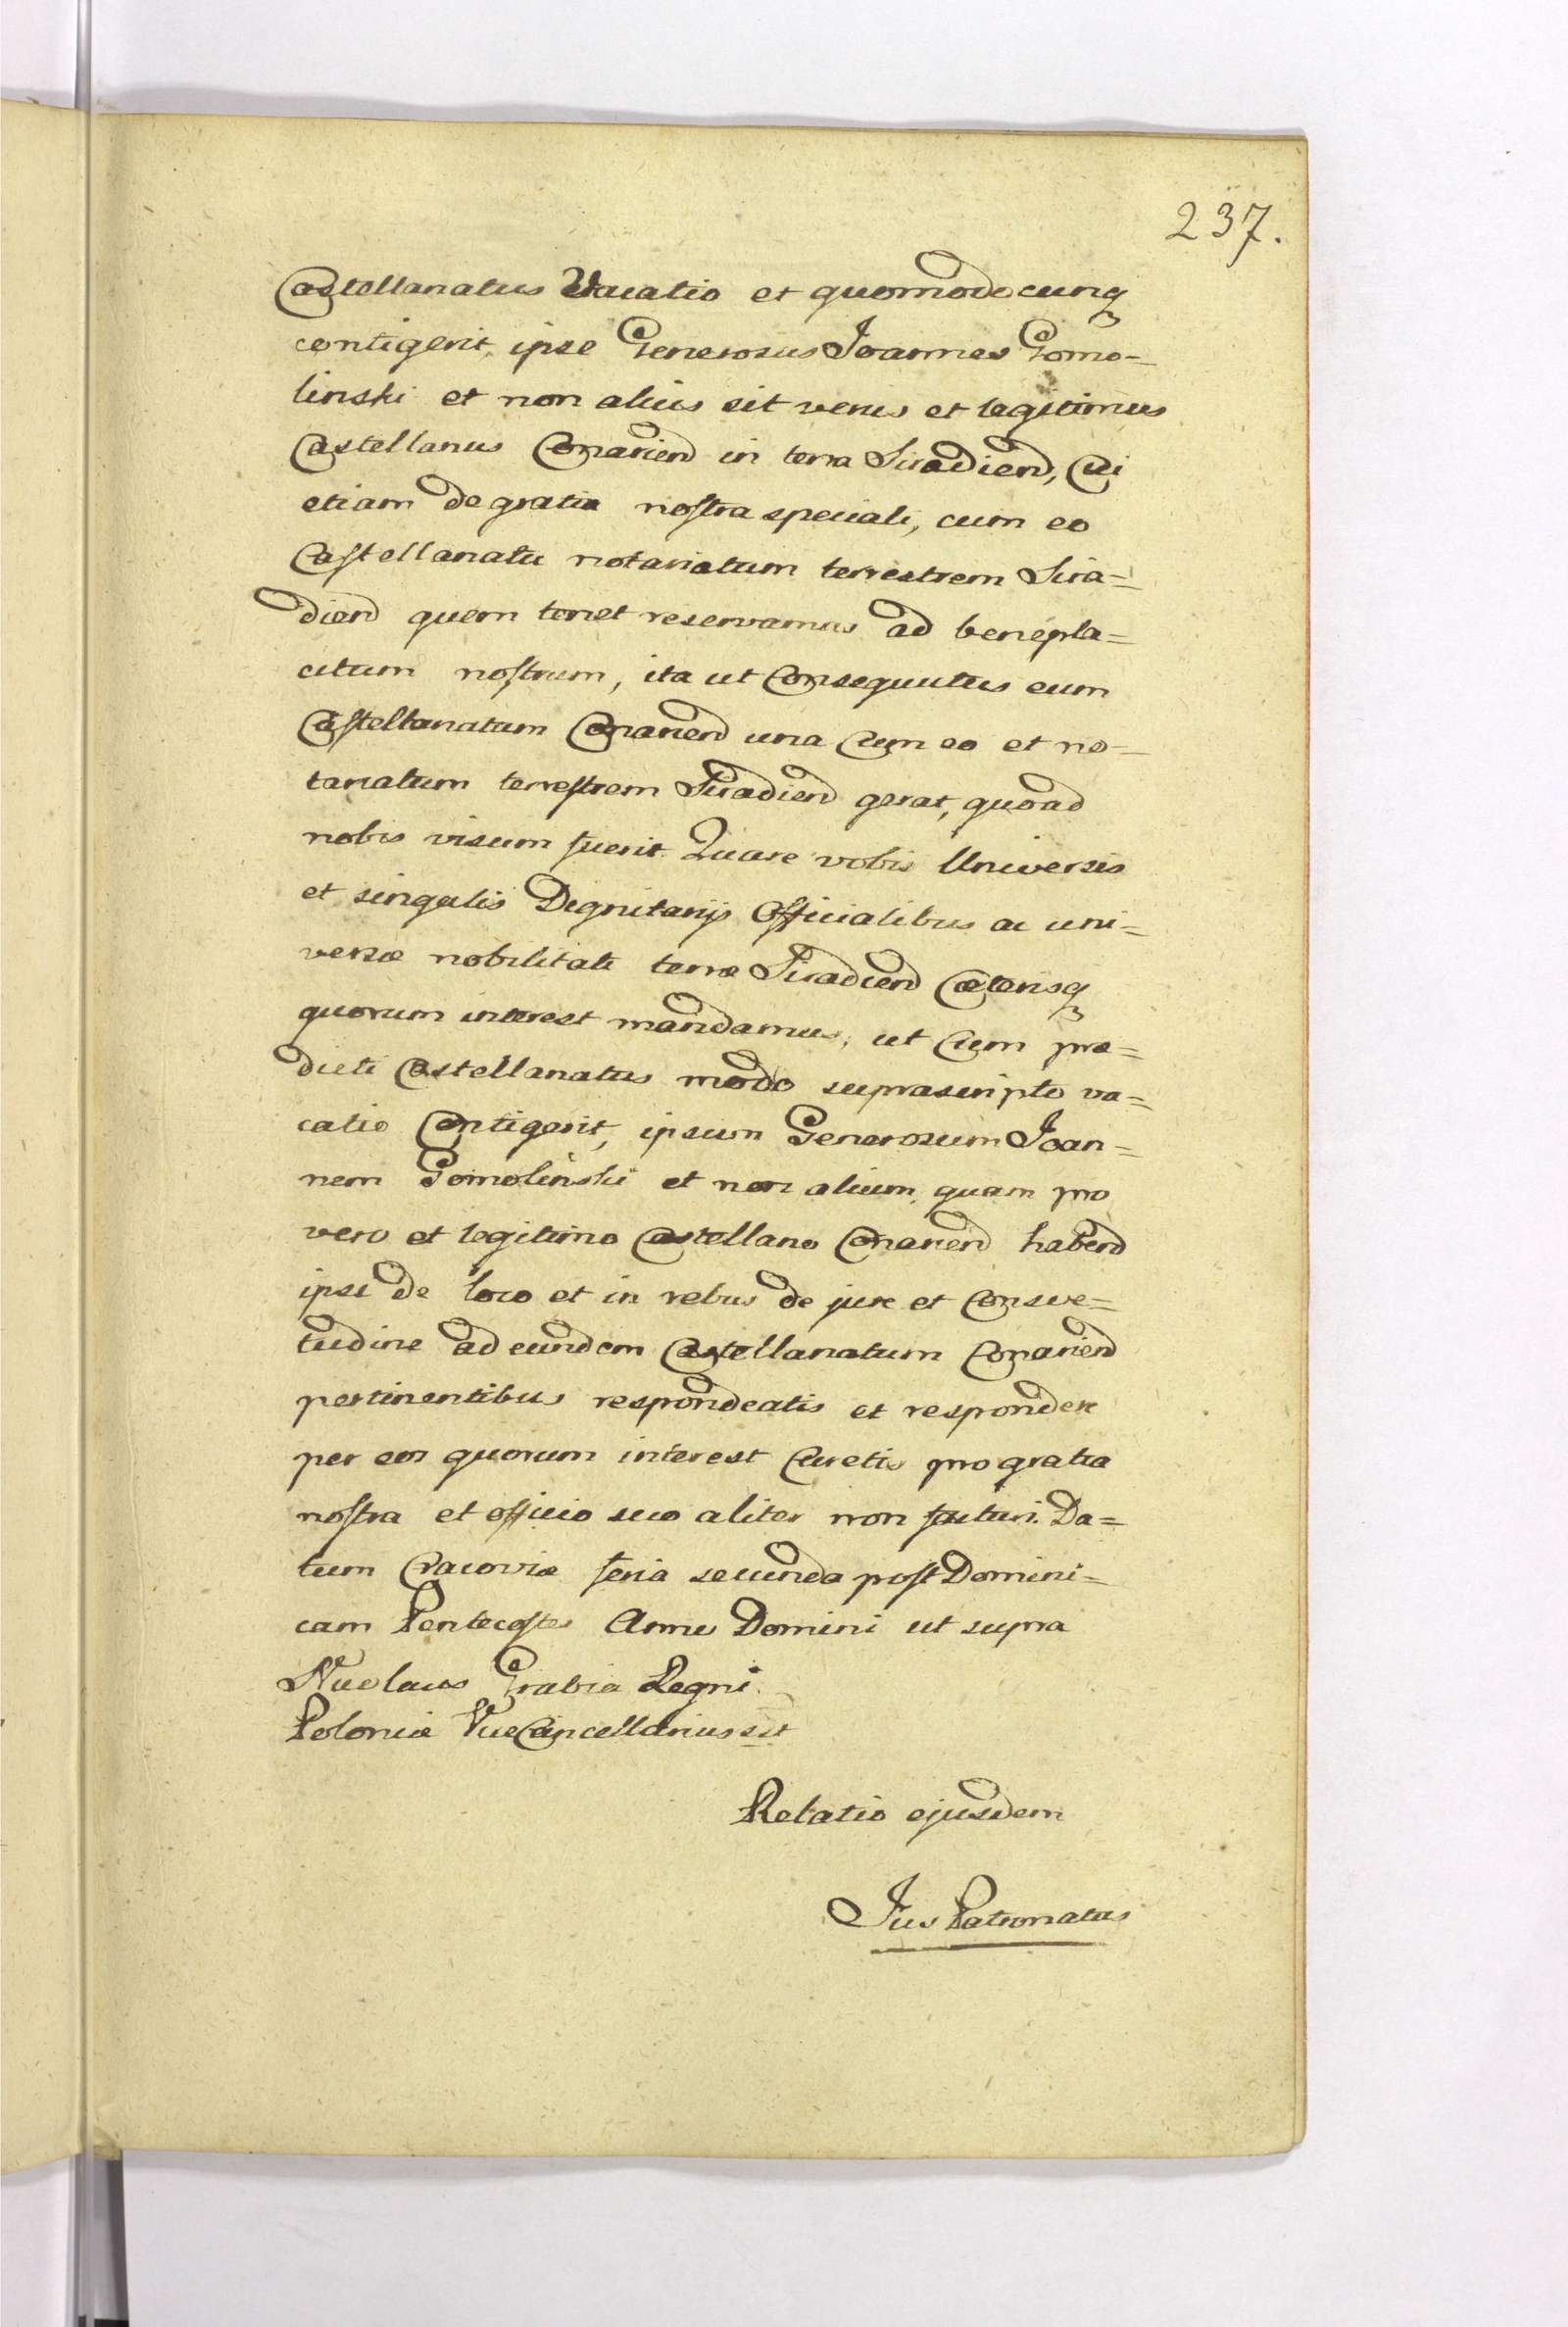 237.
Castellanatus Vacatio et quomodocunq
contigerit, ipse Generosus Joannes Gomo-
linski et non alius sit verus et legitimus
Castellanus Conariend in terra Siradiend, Cui
etiam de gratia nostra speciali, cum eo
Castellanatu notariatum terrestrem Sira=
diend quem tenet reservamus ad benepla=
citum nostrum, ita ut Consequutus eum
Castellanatum Conariend una Cum eo et no-
tariatum terrestrem Siradiend gerat, quoad
nobis visum fuerit. Quare vobis Universis
et singulis Dignitarijs Officialibus ac uni=
versæ nobilitati terræ Siradiend Cæterisq
quorum interest mandamus, ut Cum præ=
dicti Castellanatus modo suprascripto va=
catio Contigerit, ipsum Generosum Joan=
nem Gomolinski et non alium, quam pro
vero et legitimo Castellano Conariend habend
ipsi de loco et in rebus de jure et Consve=
tudine ad eundem Castellanatum Conariend
pertinentibus respondeatis et respondere
per eos quorum interest Curetis pro gratia
nostra et officio suo aliter non facturi. Da=
tum Cracoviæ feria secunda post Domini=
cam Pentecostes Anno Domini ut supra
Nicolaus Grabia Regni
Poloniæ ViceCancellarius sst
Relatio ejusdem
Jus Patronatus